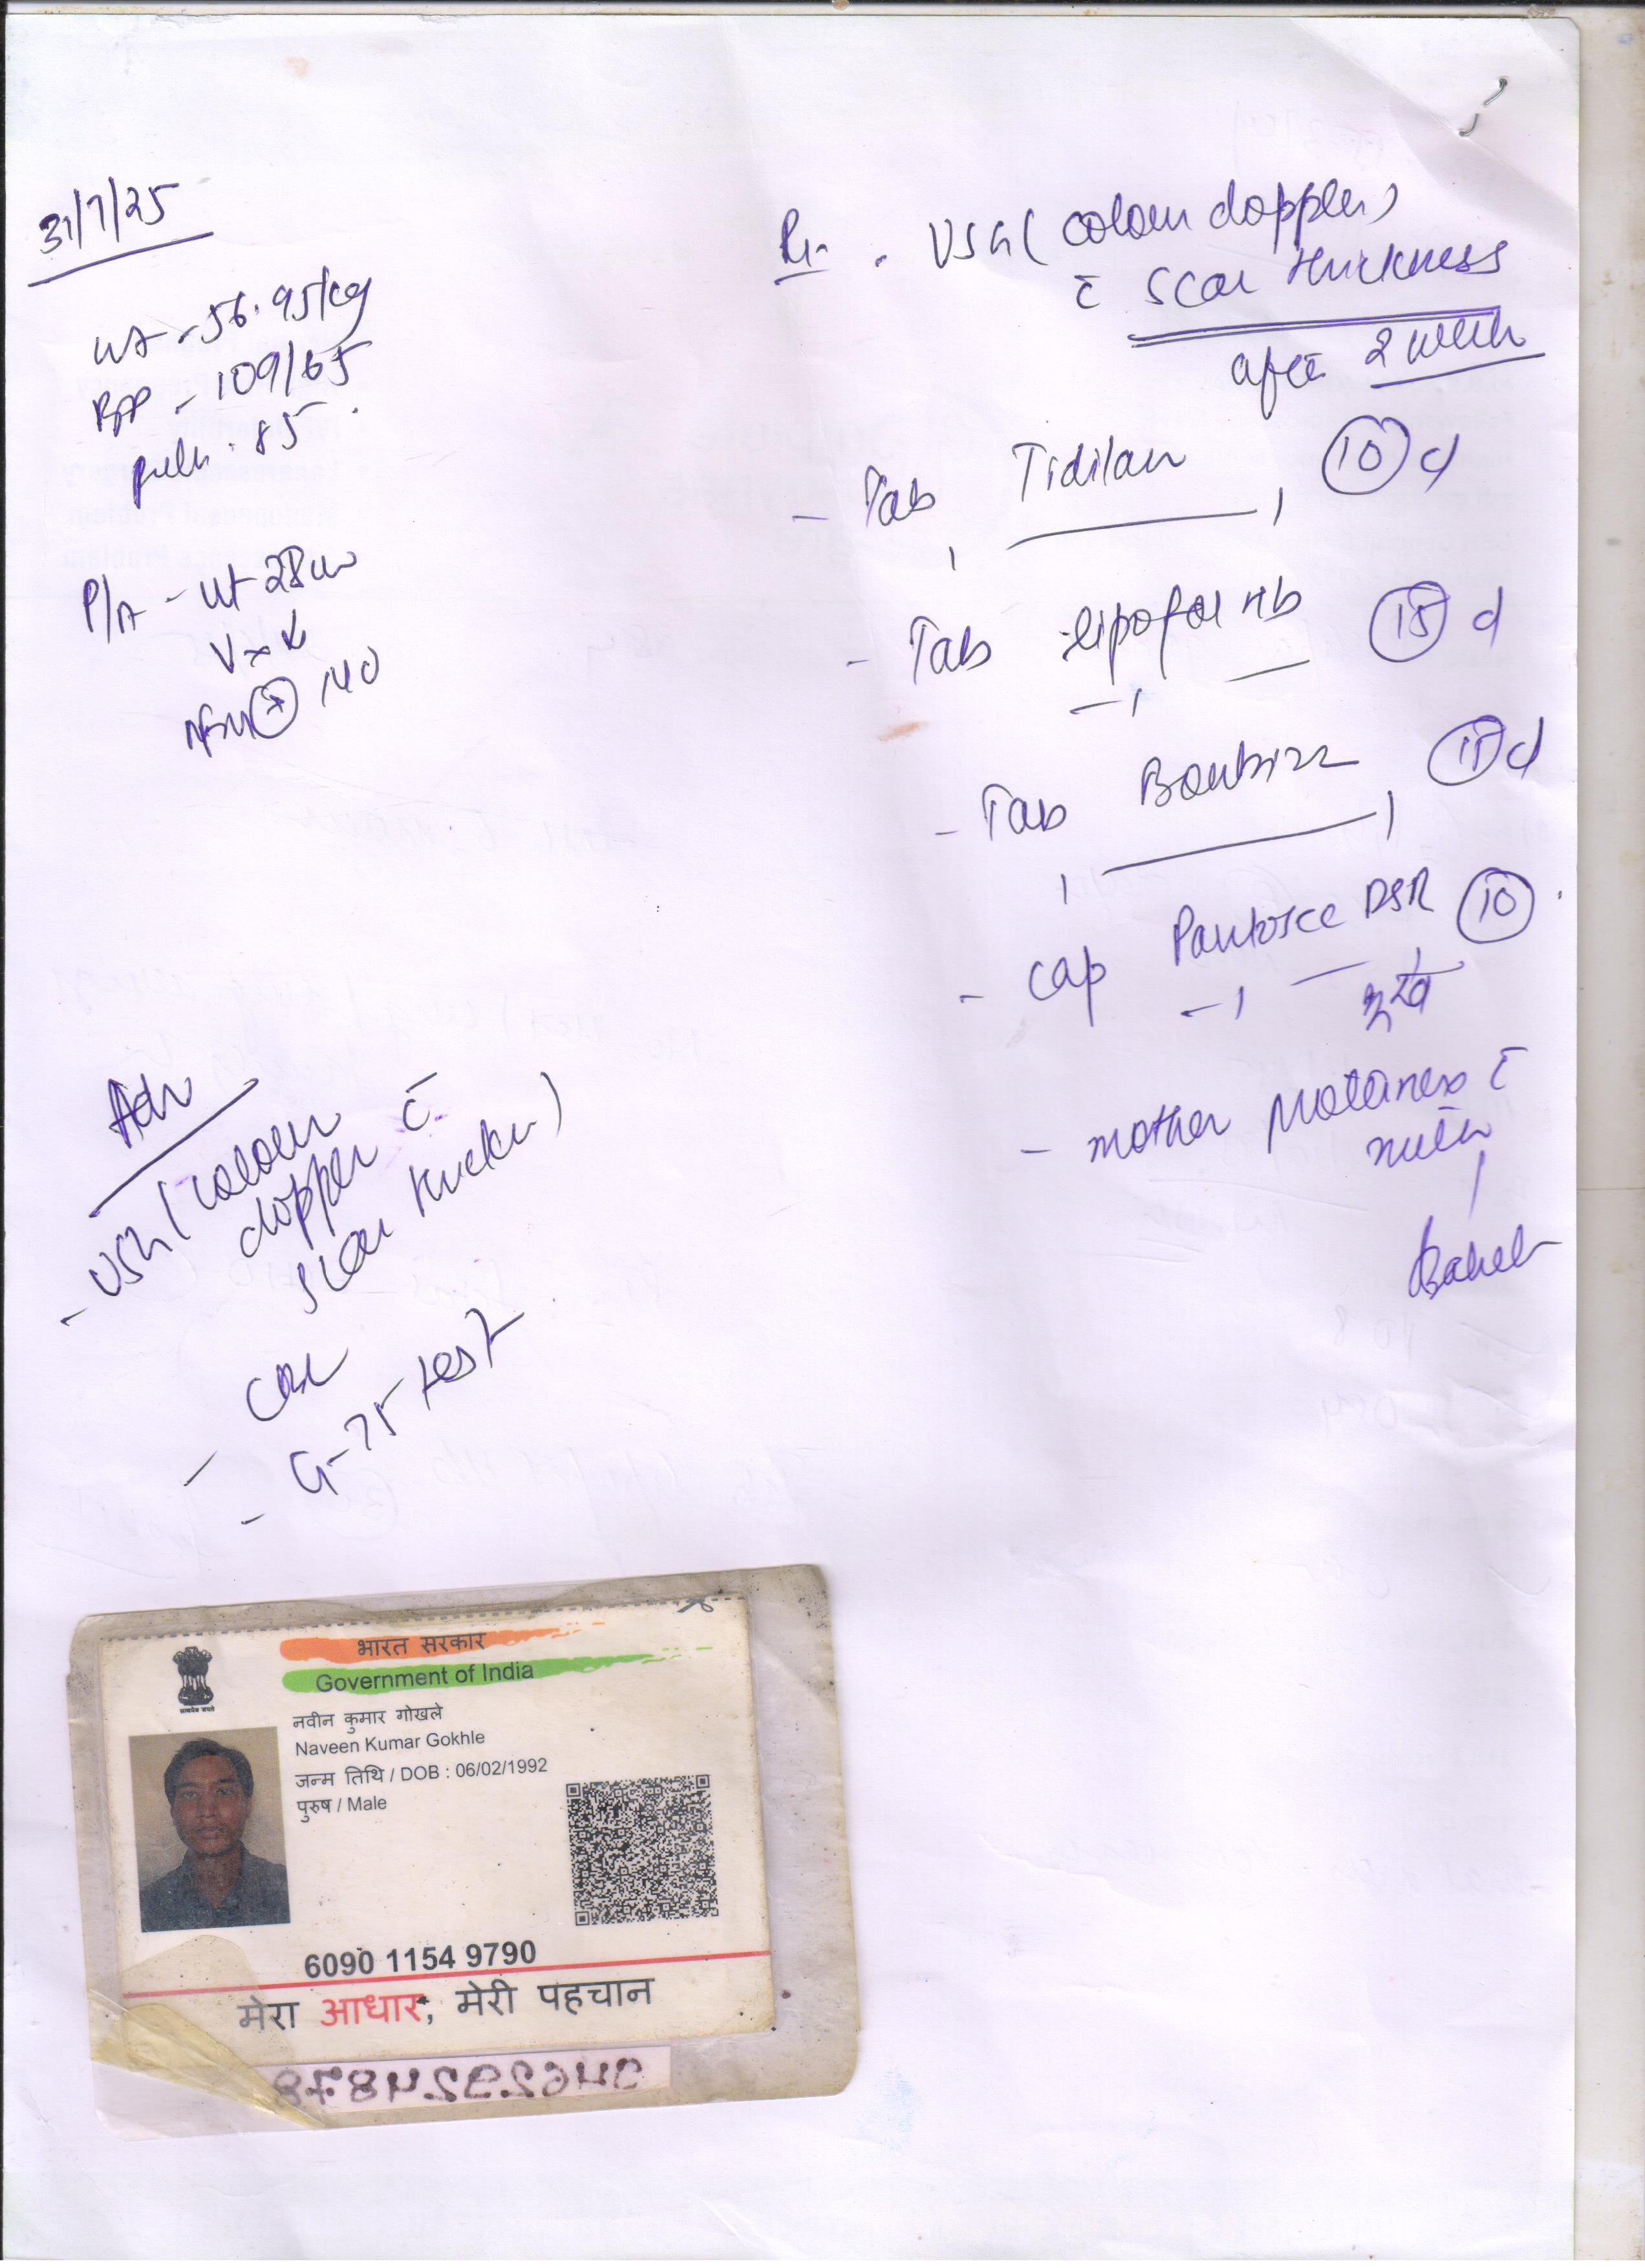 31/7/25
Wt - 56.95 kg
BP - 109/65
pulse . 85
P/A - Ut 28w
140
Adv
- USG (colour
doppler c̄
scar
- CBC
- G-75 test
Rx . USG (colour doppler)
c̄ scar thickness
after 2 week
- Tab Tidilan 10 d
1 ——— 1
- Tab Lipofer Hb 15 d
— 1 —
- Tab 15 d
1 ——— 1
- Cap DSR 10
— 1 —
- mother c̄
भारत सरकार
Government of India
नवीन कुमार गोखले
Naveen Kumar Gokhle
जन्म तिथि / DOB : 06/02/1992
पुरुष / Male
6090 1154 9790
मेरा आधार, मेरी पहचान